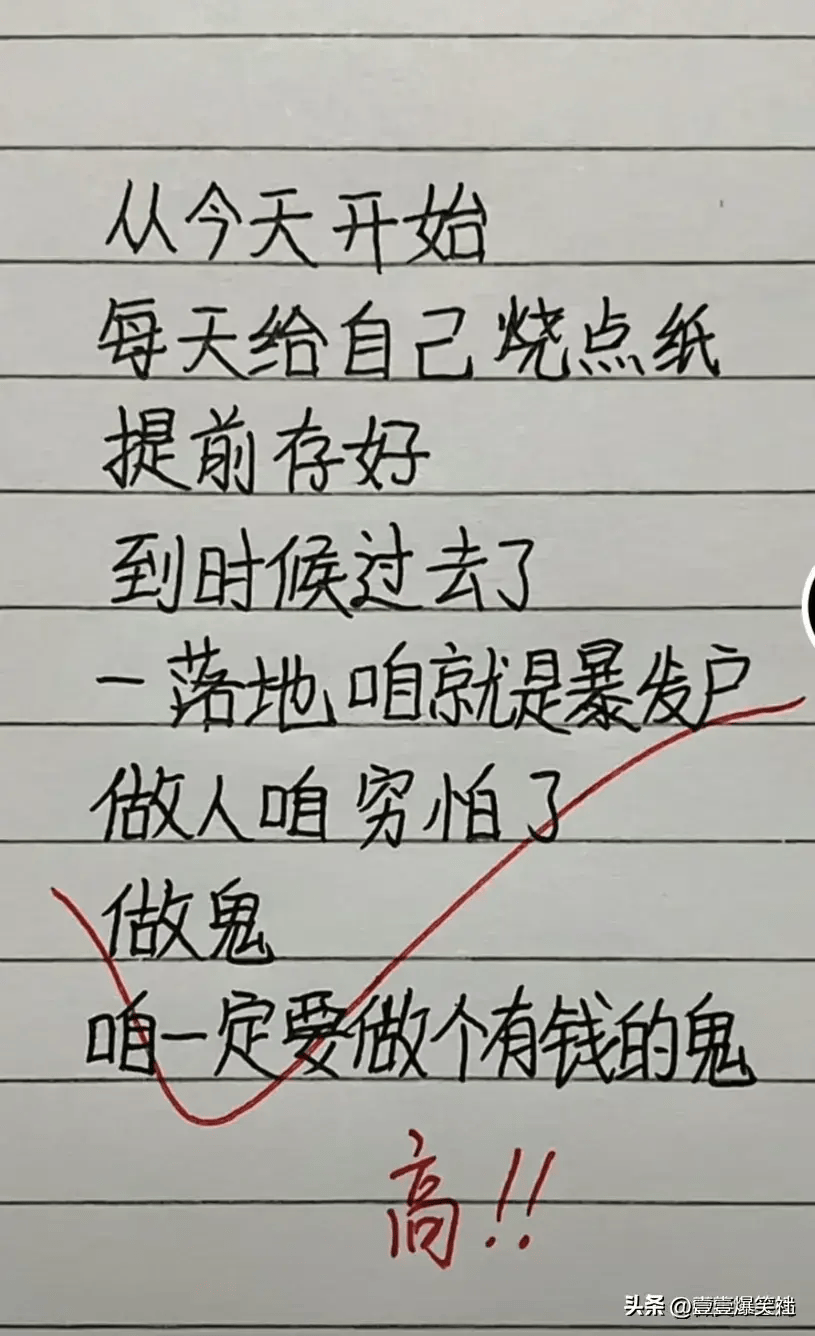 从今天开始
每天给自己烧点纸
提前存好
到时候过去了
一落地咱就是暴发户
做人咱穷怕了
做鬼
咱一定要做个有钱的鬼
高!!
头条 @壹壹爆笑社